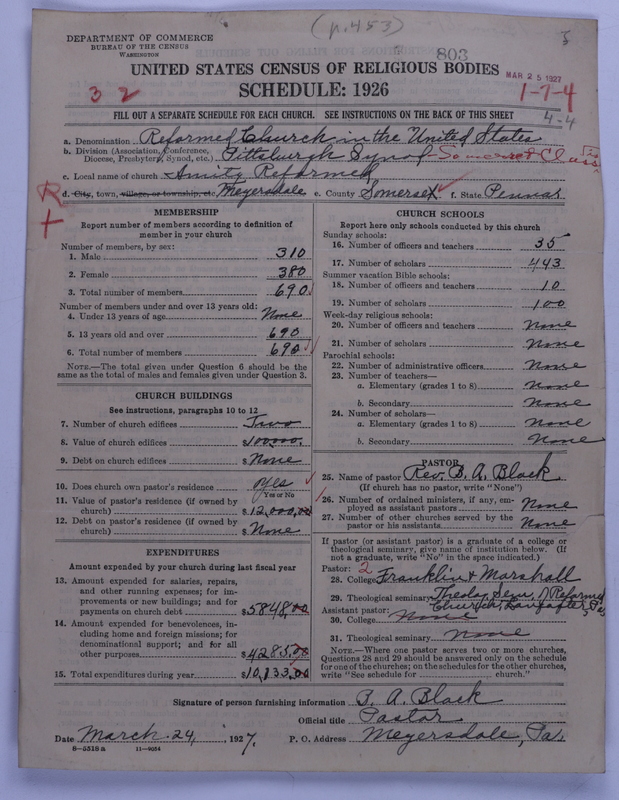 (p. 453)
DEPARTMENT OF COMMERCE
BUREAU OF THE CENSUS
WASHINGTON
803
UNITED STATES CENSUS OF RELIGIOUS BODIES
MAR 25 1927
SCHEDULE: 1926
3 2
1-7-4
FILL OUT A SEPARATE SCHEDULE FOR EACH CHURCH. SEE INSTRUCTIONS ON THE BACK OF THIS SHEET
4-4
a. Denomination Reformed Church in the United States
b. Division (Association, Conference, Diocese, Presbytery, Synod, etc.) Pittsburgh Synod - Somerset Classis
c. Local name of church Amity Reformed
R d. City, town, village, or township, etc. Meyersdale e. County Somerset f. State Penna.
MEMBERSHIP
Report number of members according to definition of
member in your church
Number of members, by sex:
1. Male 310
2. Female 380
3. Total number of members 690
Number of members under and over 13 years old:
4. Under 13 years of age None
5. 13 years old and over 690
6. Total number of members 690
NOTE.—The total given under Question 6 should be
same as the total of males and females given under Question 3.
CHURCH BUILDINGS
See instructions, paragraphs 10 to 12
7. Number of church edifices Two
8. Value of church edifices $100000.
9. Debt on church edifices $None
10. Does church own pastor's residence? yes
Yes or No
11. Value of pastor's residence (if owned by
church) $12,000,00
12. Debt on pastor's residence (if owned by
church) $None
EXPENDITURES
Amount expended by church during last fiscal year
13. Amount expended for salaries, repairs,
and other running expenses; for im-
provements or new buildings; and for
payments on church debt $5848,00
14. Amount expended for benevolences, in-
cluding home and foreign missions; for
denominational support; and for all
other purposes $4285,00
15. Total expenditures during year $10,133,00
CHURCH SCHOOLS
Report here only schools conducted by this church
Sunday schools:
16. Number of officers and teachers 35
17. Number of scholars 443
Summer vacation Bible schools:
18. Number of officers and teachers 10
19. Number of scholars 100
Week-day religious schools:
20. Number of officers and teachers None
21. Number of scholars None
Parochial schools:
22. Number of administrative officers None
23. Number of teachers—
a. Elementary (grades 1 to 8) None
b. Secondary None
24. Number of scholars—
a. Elementary (grades 1 to 8) None
b. Secondary None
PASTOR
25. Name of pastor Rev. B. A. Black
(If church has no pastor, write "None")
26. Number of ordained ministers, if any, em-
ployed as assistant pastors None
27. Number of other churches served by the
pastor or his assistants None
If pastor (or assistant pastor) is a graduate of a college or
theological seminary, give name of institution below. (If
not a graduate, write "No" in the space indicated.)
Pastor: 2
28. College Franklin & Marshall
29. Theological seminary Theolog. Sem. of Reformed
Church, Lancaster, Pa.
Assistant pastor:
30. College None
31. Theological seminary None
NOTE.—Where one pastor serves two or more churches,
Questions 28 and 29 should be answered only on the schedule
for one of the churches; on the schedules for the other churches,
write "See schedule for church."
Signature of person furnishing information B. A. Black
Official title Pastor
Date March 24, 1927. P. O. Address Meyersdale, Pa.
8-5518a 11-9054